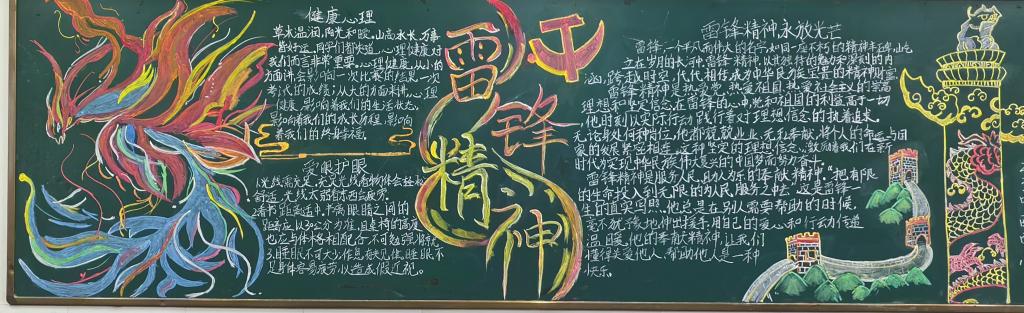 健康心理
草木温润,阳光和暖。山高水长,万事
皆好运。同学们都知道,心理健康对
我们而言非常重要。心理健康,从小的
方面讲会影响一次比赛的结果、一次
考试的成绩;从大的方面来讲,心理
健康,影响着我们的生活状态,
影响着我们的成长历程,影响
着我们的终身幸福。
爱眼护眼
1.光线需充足:充足光线看物体会轻松
舒适,光线太弱
2.看书距离适中,书离眼睛之间的
距离应以30公分为准,且桌椅的高度
也应与体格相配合,不可勉强将就。
3.睡眠不可少,作息有规律。睡眠不
足身体容易疲劳,以造成假近视。
雷锋
精神
雷锋精神永放光芒
雷锋,一个平凡而伟大的名字,如同一座不朽的精神丰碑,屹
立在岁月的长河中。雷锋精神,以其独特的魅力和深刻的内
涵,跨越时空,代代相传,成为中华民族宝贵的精神财富
雷锋精神是热爱党、热爱祖国、热爱社会主义的崇高
理想和坚定信念。在雷锋的心中,党和祖国的利益高于一切
他时刻以实际行动践行着对理想信念的执着追求。
无论身处何种岗位,他都兢兢业业、无私奉献,将个人的命运与国
家的发展紧密相连。这种坚定的理想信念,激励着我们在新
时代为实现中华民族伟大复兴的中国梦而努力奋斗。
雷锋精神是服务人民、助人为乐的奉献精神。"把有限
的生命投入到无限的为人民服务之中去"这是雷锋一
生的真实写照。他总是在别人需要帮助的时候,
毫不犹豫地伸出援手,用自己的爱心和行动传递
温暖。他的奉献精神,让我们
懂得关爱他人、帮助他人是一种
快乐。